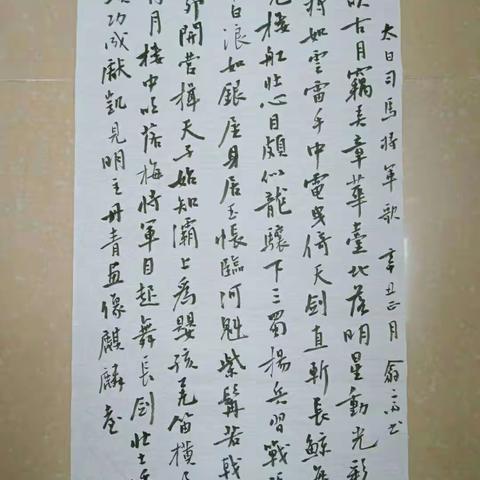 太白司馬將軍歌 辛丑正月 翁高书
吹古月竊弄章華臺北落明星動光彩
將如雲雷手中電曳倚天劍直斬長鯨
見樓船壯心目頗似龍驤下三蜀揚兵習戰
白浪如銀屋身居玉帳臨河魁紫髯若戟
開營揖天子始知灞上為嬰孩羌笛橫
月樓中吹落梅將軍自起舞長劍壯士
功成獻凱見明主丹青画像麒麟臺